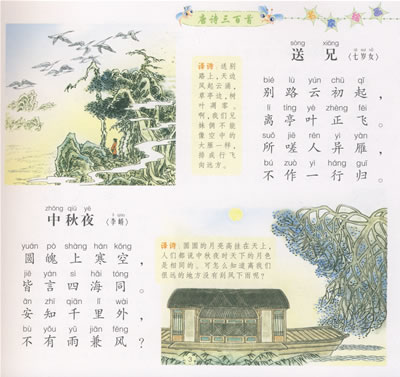 唐诗三百首
sòng xiōng
送兄 (七岁女)
译诗：送别
路上，天边
风起云涌，
草亭边，树
叶凋零。
啊，我们兄
妹俩不能
像空中的
大雁一样，
排成行飞
向远方。
bié lù yún chū qǐ
别路云初起，
lí tíng yè zhèng fēi
离亭叶正飞。
suǒ jiē rén yì yàn
所嗟人异雁，
bú zuò yì háng guī
不作一行归。
zhōng qiū yè
中秋夜 (李峤)
yuán pò shàng hán kōng
圆魄上寒空，
jiē yán sì hǎi tóng
皆言四海同。
ān zhī qiān lǐ wài
安知千里外，
bù yǒu yǔ jiān fēng
不有雨兼风？
译诗：圆圆的月亮高挂在天上，
人们都说中秋夜时天下的月色
是相同的。可怎么知道离我们
很远的地方没有刮风下雨呢？